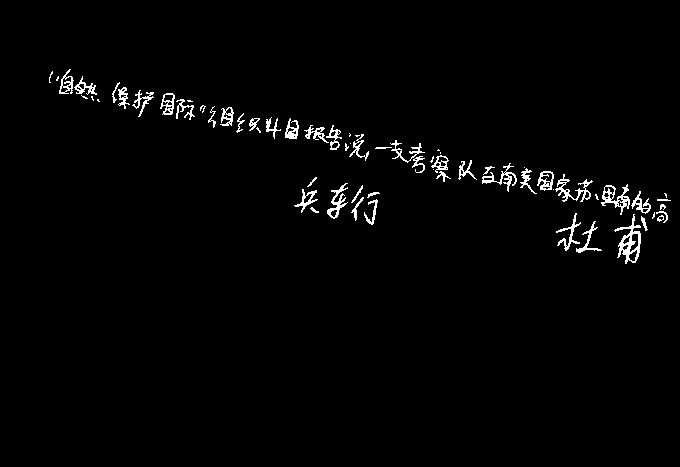 “自然保护国际”组织4日报告说,一支考察队在南美国家苏里南的高
兵车行
杜甫